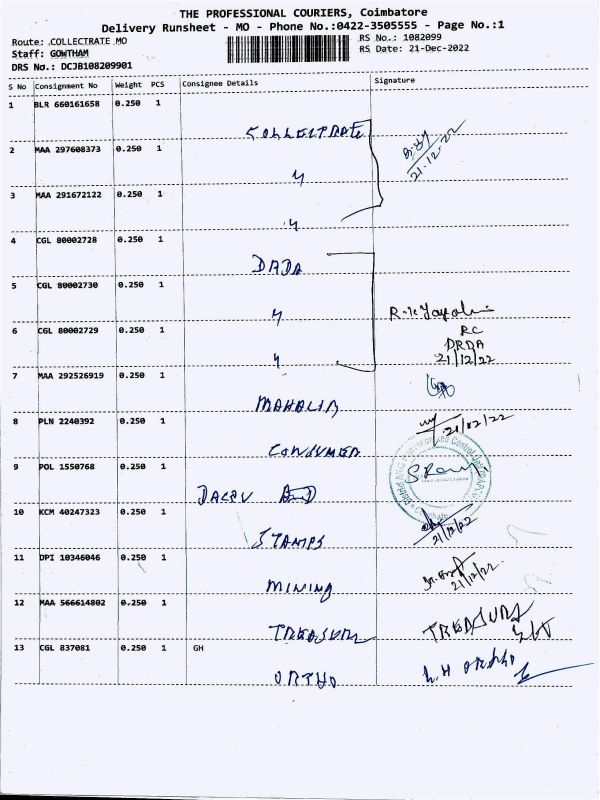 THE PROFESSIONAL COURIERS, Coimbatore
Delivery Runsheet - MO - Phone No.:0422-3505555 - Page No.:1
Route: COLLECTRATE MO
RS No.: 1082099
Staff: GOWTHAM
RS Date: 21-Dec-2022
DRS No.: DCJB108209901
S No Consignment No Weight PCS Consignee Details Signature
1 BLR 660161658 0.250 1
COLLECTRATE
21-12-22
2 MAA 297608373 0.250 1
"
3 MAA 291672122 0.250 1
"
4 CGL 80002728 0.250 1
DRDA
5 CGL 80002730 0.250 1
"
RC
DRDA
21/12/22
6 CGL 80002729 0.250 1
"
7 MAA 292526919 0.250 1
MAHALIR
21/12/22
8 PLN 2240392 0.250 1
CONSUMER
9 POL 1550768 0.250 1
10 KCM 40247323 0.250 1
STAMPS
21/12/22
11 DPI 10346046 0.250 1
MINING
21/12/22
12 MAA 566614802 0.250 1
TREASURY
TREASURY
13 CGL 837081 0.250 1 GH
ORTHO
ORTHO